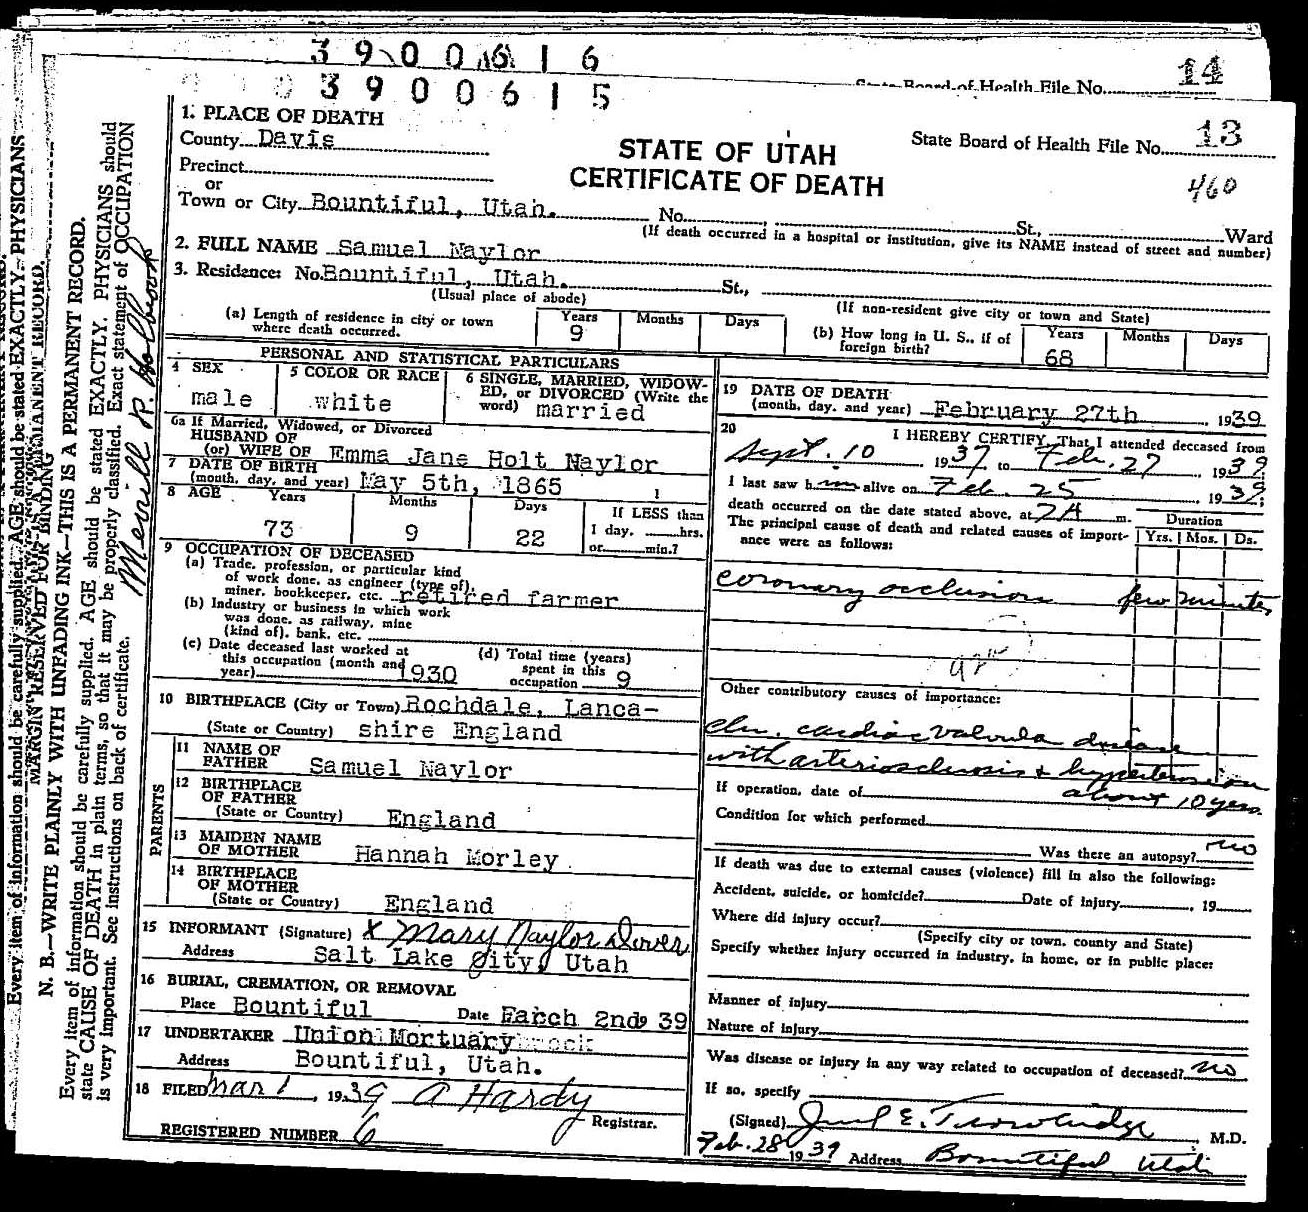 3900616
14
3900615
State Board of Health File No.
1. PLACE OF DEATH
County Davis
State Board of Health File No. 13
STATE OF UTAH
CERTIFICATE OF DEATH
460
Precinct
or
Town or City Bountiful, Utah. No. St., Ward
(If death occurred in a hospital or institution, give its NAME instead of street and number)
2. FULL NAME Samuel Naylor
3. Residence: No. Bountiful, Utah. St.,
(Usual place of abode) (If non-resident give city or town and State)
(a) Length of residence in city or town where death occurred. Years 9 Months Days
(b) How long in U. S., if of foreign birth? Years 68 Months Days
PERSONAL AND STATISTICAL PARTICULARS
4 SEX male
5 COLOR OR RACE white
6 SINGLE, MARRIED, WIDOW-
ED, or DIVORCED (Write the
word) married
6a If Married, Widowed, or Divorced
HUSBAND OF
(or) WIFE OF Emma Jane Holt Naylor
7 DATE OF BIRTH
(month, day, and year) May 5th, 1865
8 AGE Years Months Days If LESS than
73 9 22 1 day, hrs.
or min.?
9 OCCUPATION OF DECEASED
(a) Trade, profession, or particular kind
of work done, as engineer (type of),
miner, bookkeeper, etc. retired farmer
(b) Industry or business in which work
was done, as railway, mine
(kind of), bank, etc.
(c) Date deceased last worked at
this occupation (month and
year) 1930
(d) Total time (years)
spent in this
occupation 9
10 BIRTHPLACE (City or Town) Rochdale, Lanca-
(State or Country) shire England
PARENTS
11 NAME OF
FATHER Samuel Naylor
12 BIRTHPLACE
OF FATHER
(State or Country) England
13 MAIDEN NAME
OF MOTHER Hannah Morley
14 BIRTHPLACE
OF MOTHER
(State or Country) England
15 INFORMANT (Signature) x Mary Naylor Dover
Address Salt Lake City, Utah
16 BURIAL, CREMATION, OR REMOVAL
Place Bountiful Date March 2nd, 39
17 UNDERTAKER Union Mortuary
Address Bountiful, Utah.
18 FILED Mar 1, 1939 A Hardy
Registrar.
REGISTERED NUMBER 6
19 DATE OF DEATH
(month, day, and year) February 27th, 1939
20 I HEREBY CERTIFY, That I attended deceased from
Sept. 10 1937 to Feb. 27 1939
I last saw him alive on Feb. 25 1939;
death occurred on the date stated above, at 7A m.
The principal cause of death and related causes of import-
ance were as follows:
Duration
Yrs. Mos. Ds.
coronary occlusion few minutes
Other contributory causes of importance:
Chr. cardiac valvula disease
with arteriosclerosis & hypertension
about 10 yrs.
If operation, date of
Condition for which performed
Was there an autopsy? no
If death was due to external causes (violence) fill in also the following:
Accident, suicide, or homicide? Date of injury, 19
Where did injury occur?
(Specify city or town, county and State)
Specify whether injury occurred in industry, in home, or in public place:
Manner of injury
Nature of injury
Was disease or injury in any way related to occupation of deceased? no
If so, specify
(Signed) E. Trowbridge, M.D.
Feb. 28 1939 Address Bountiful Utah
MARGIN RESERVED FOR BINDING
N. B.—WRITE PLAINLY WITH UNFADING INK—THIS IS A PERMANENT RECORD.
Every item of information should be carefully supplied. AGE should be stated EXACTLY. PHYSICIANS should
state CAUSE OF DEATH in plain terms, so that it may be properly classified. Exact statement of OCCUPATION
is very important. See instructions on back of certificate.
Merrill R. Holbrook